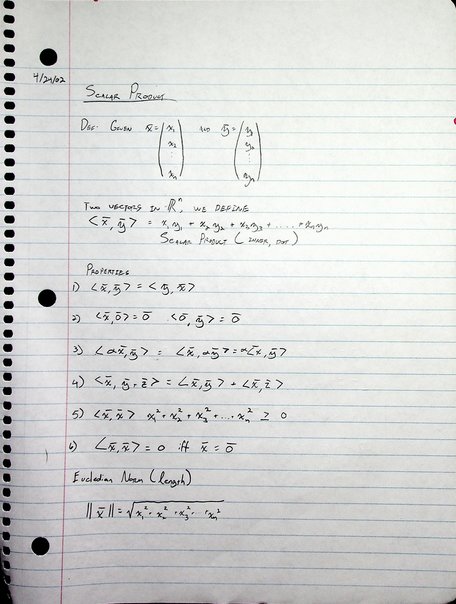 4/24/02
Scalar Product
Def: Given x̄ = (x₁ x₂ ⋮ xₙ) and ȳ = (y₁ y₂ ⋮ yₙ)
Two vectors in ℝⁿ, we define
<x̄, ȳ> = x₁y₁ + x₂y₂ + x₃y₃ + ..... + xₙyₙ
Scalar Product (inner, dot)
Properties
1) <x̄, ȳ> = <ȳ, x̄>
2) <x̄, ō> = ō <ō, ȳ> = ō
3) <αx̄, ȳ> = <x̄, αȳ> = α<x̄, ȳ>
4) <x̄, ȳ + z̄> = <x̄, ȳ> + <x̄, z̄>
5) <x̄, x̄> x₁² + x₂² + x₃² + ... + xₙ² ≥ 0
6) <x̄, x̄> = 0 iff x̄ = ō
Eucledian Norm (length)
||x̄|| = √x₁² + x₂² + x₃² + ... + xₙ²